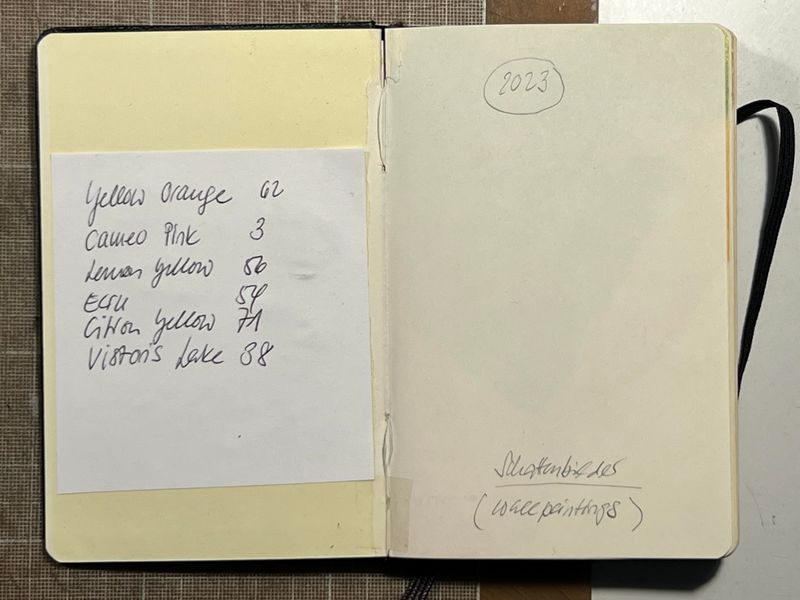 Yellow Orange 62
Cameo Pink 3
Lemon Yellow 56
Ecru 54
Citron Yellow 71
Lake 38
2023
Schattenbilder
(wallpaintings)